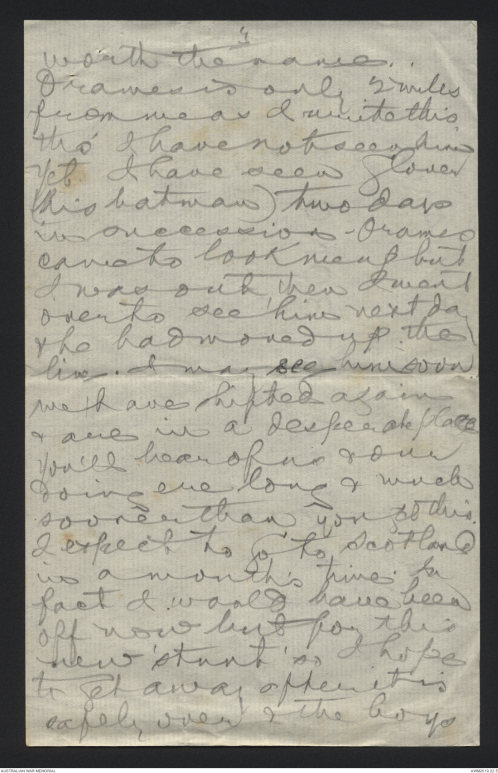 4
worth the name.
Orames is only 2 miles
from me as I write this
tho' I have not seen him
yet. I have seen Glover
(his batman) two days
in succession - Orames
came to look me up but
I was out then I went
over to see him next day
& he had moved up the
line. I may see him soon
we have shifted again
& are in a desperate place
you'll hear of us & our
doing ere long & much
sooner than you get this.
I expect to go to Scotland
in a month's time. In
fact I would have been
off now but for this
new 'stunt' so I hope
to get away after it is
safely over & the boys
AUSTRALIAN WAR MEMORIAL